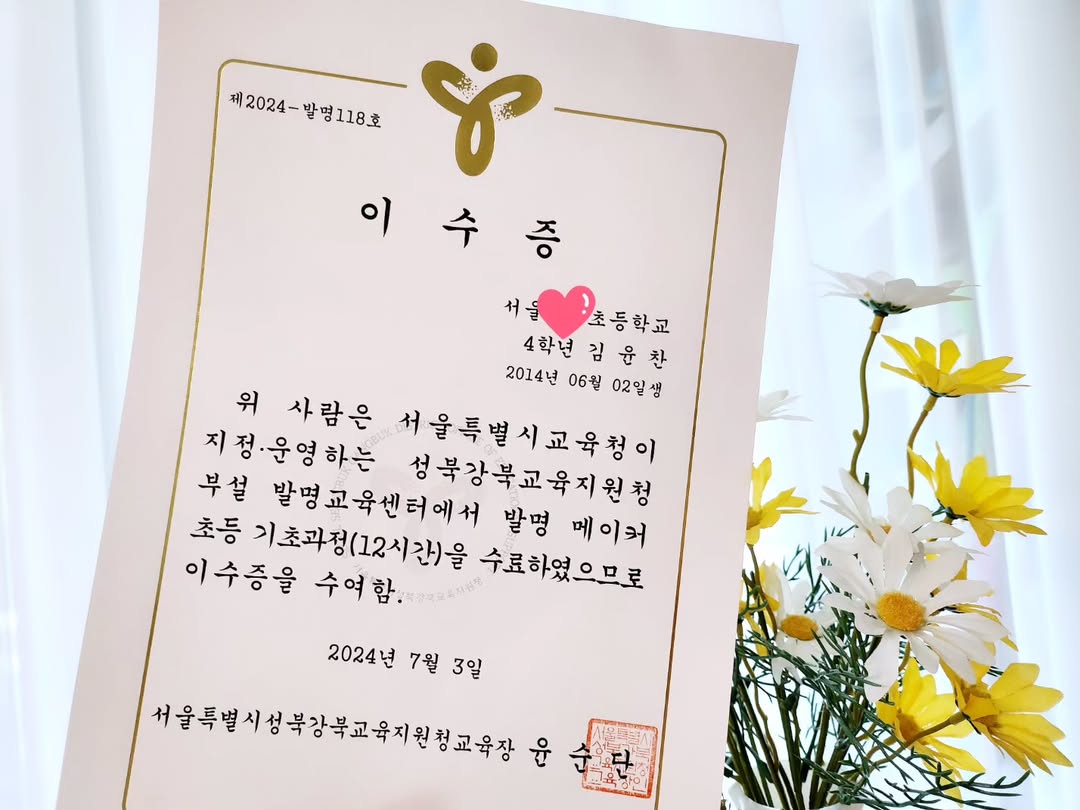 제2024-발명118호
이 수 증
서울 초등학교
4학년 김 윤 찬
2014년 06월 02일생
위 사람은 서울특별시교육청이
지정·운영하는 성북강북교육지원청
부설 발명교육센터에서 발명 메이커
초등 기초과정(12시간)을 수료하였으므로
이수증을 수여함.
2024년 7월 3일
서울특별시성북강북교육지원청교육장 윤 순 단